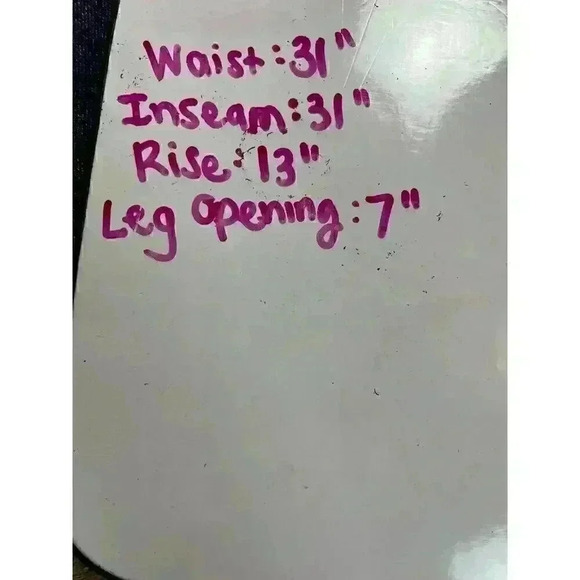 Waist: 31"
Inseam: 31"
Rise: 13"
Leg Opening: 7"